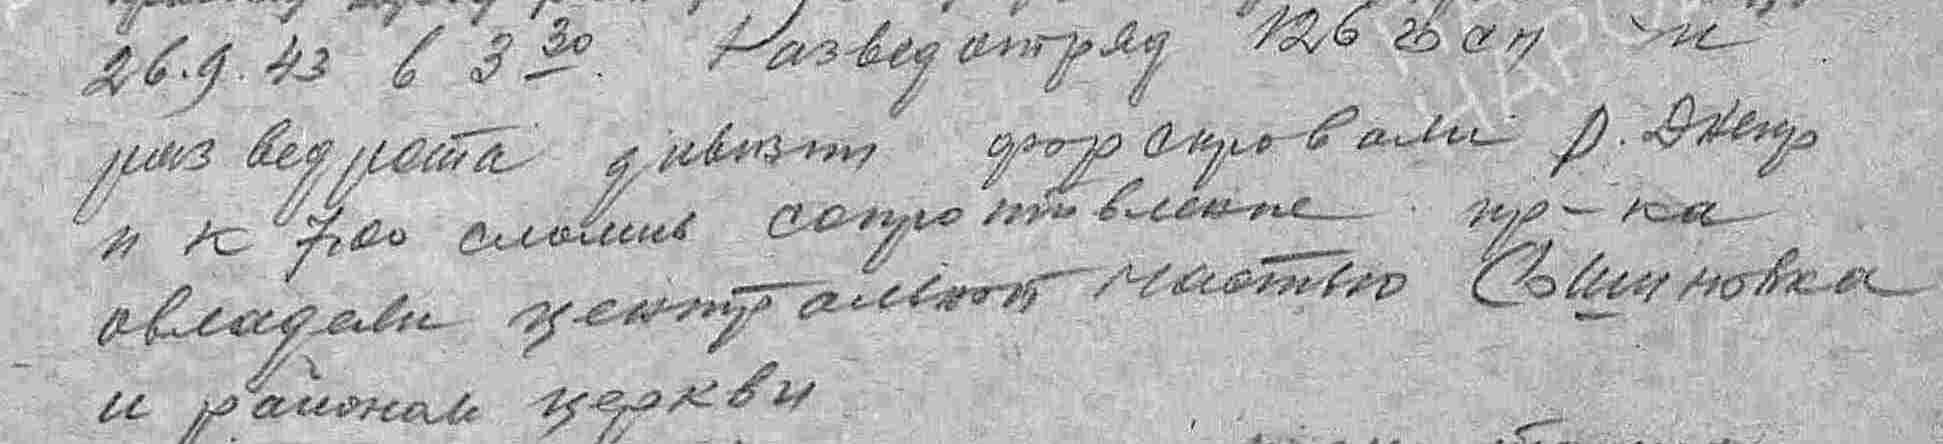 26.9.43 в 3 30. Разведотряд 126 гв сп и
развед рота дивизии форсировали р. Днепр
и к 7.00 сломив сопротивление пр-ка
овладели центральной частью Сошиновка
и районом церкви